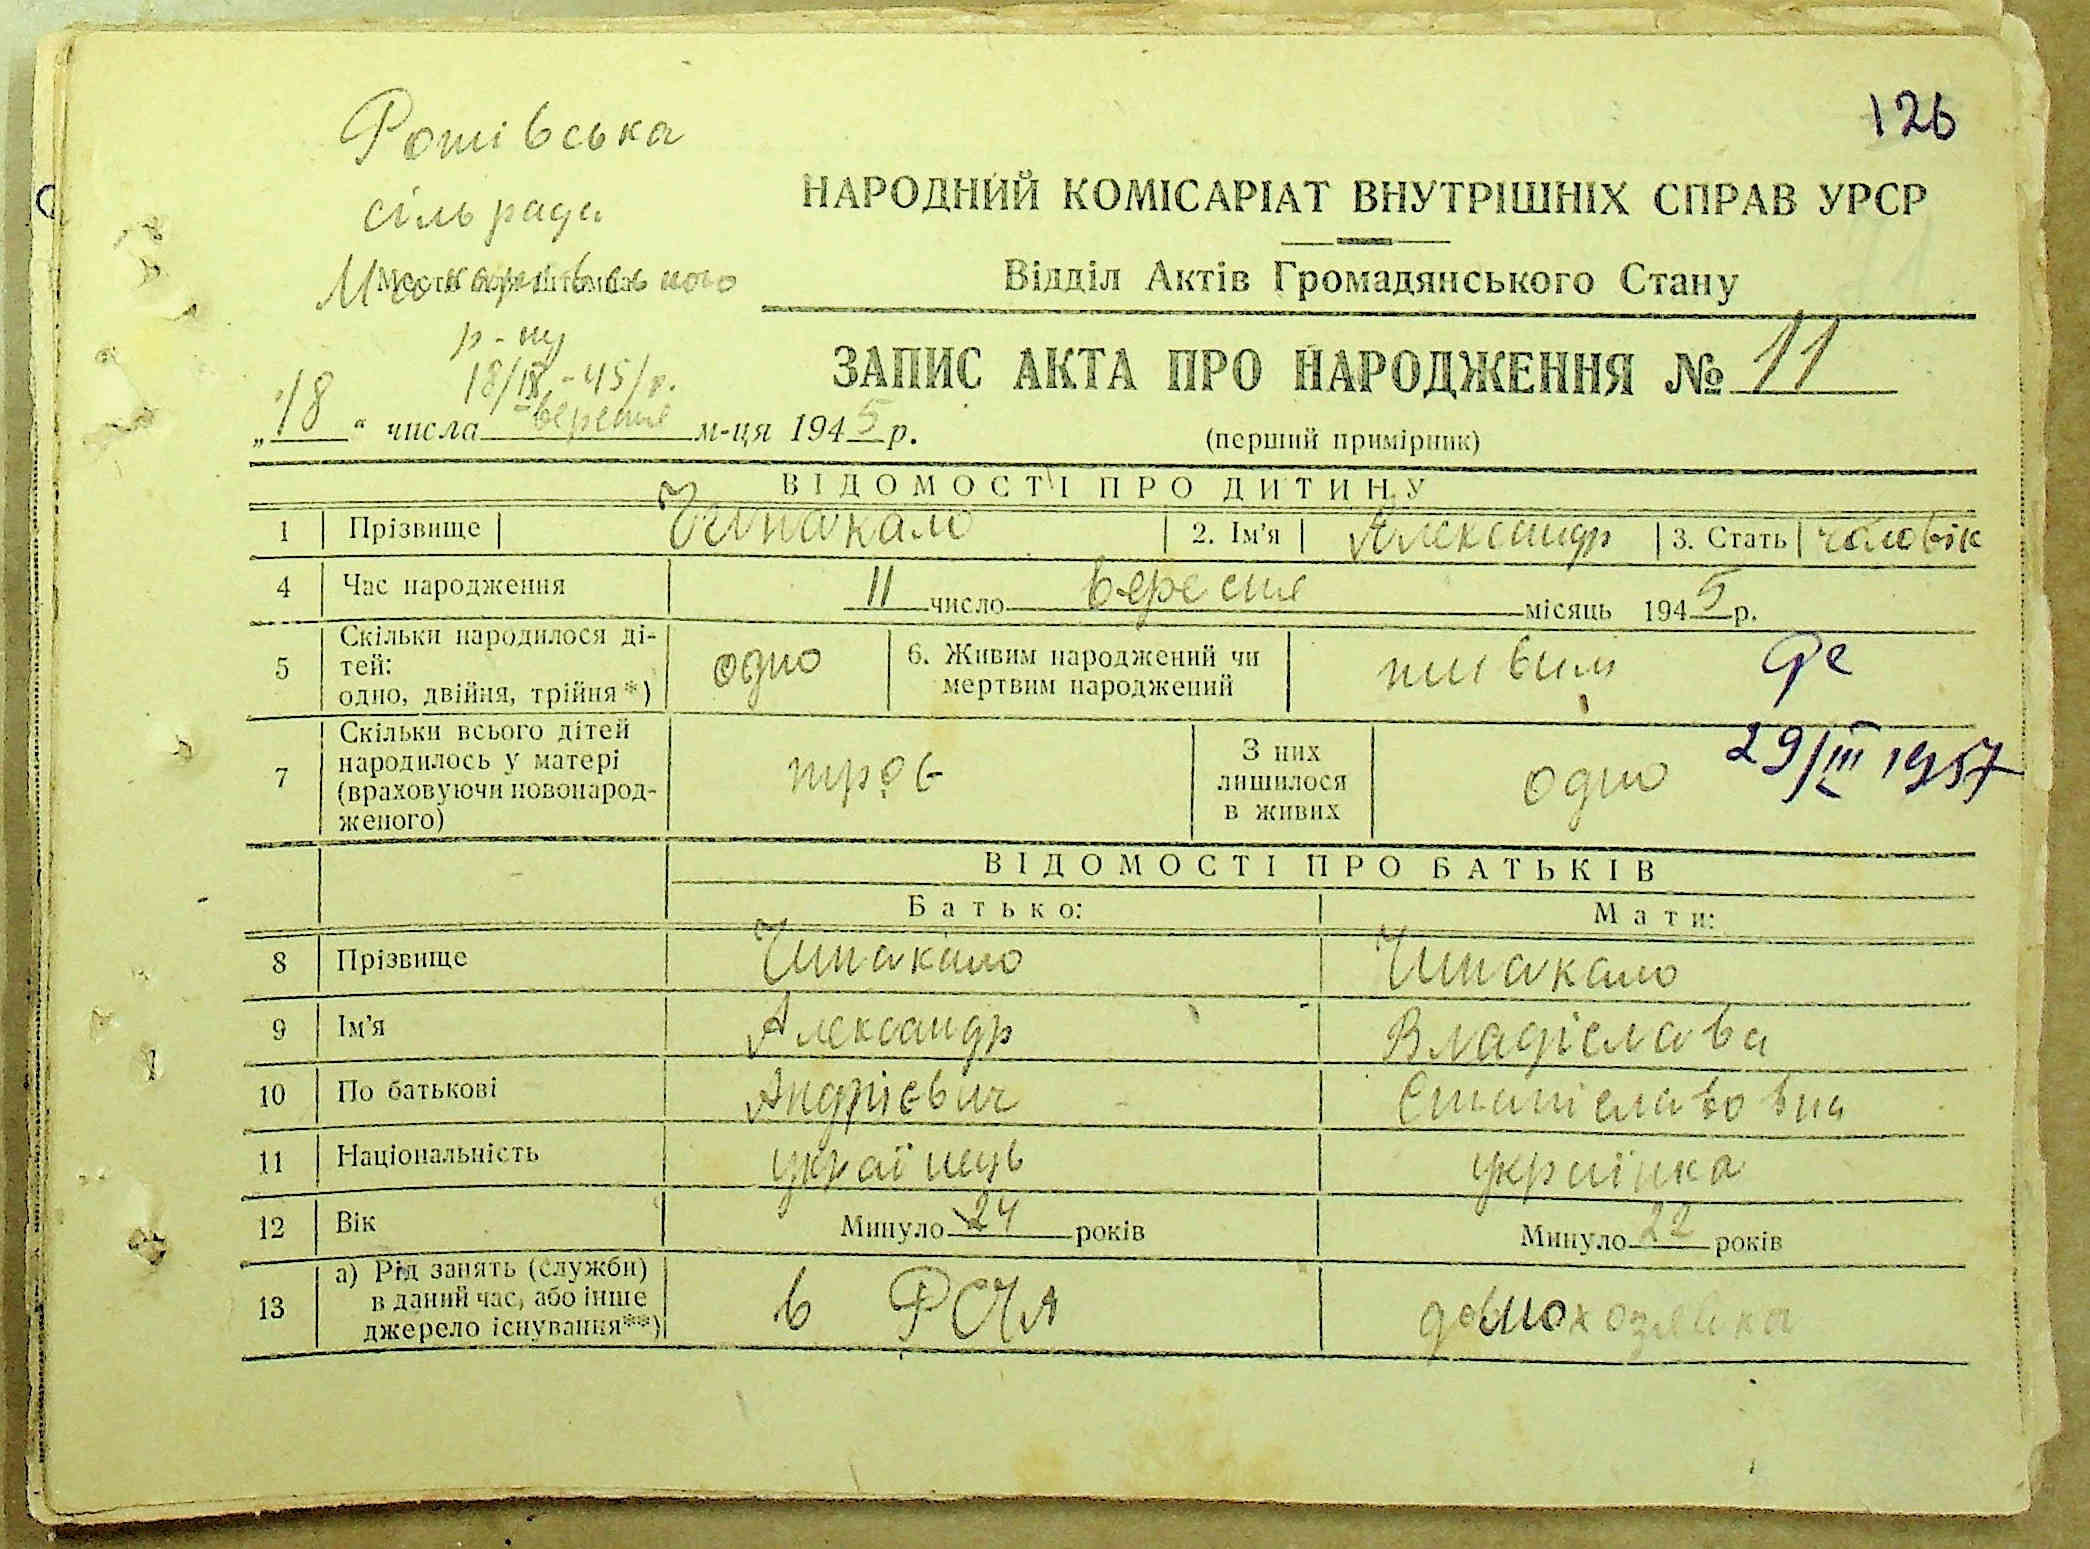 126
сільрада
р-ну
18/IX -45/р.
НАРОДНИЙ КОМІСАРІАТ ВНУТРІШНІХ СПРАВ УРСР
Відділ Актів Громадянського Стану
ЗАПИС АКТА ПРО НАРОДЖЕННЯ № 11
„18“ числа вересня м-ця 1945 р.
(перший примірник)
ВІДОМОСТІ ПРО ДИТИНУ
1 Прізвище Чипакало 2. Ім'я Александр 3. Стать чоловік
4 Час народження 11 число вересня місяць 1945 р.
5 Скільки народилося ді-
тей:
одно, двійня, трійня*) одно
6. Живим народжений чи
мертвим народжений живим
29/III 1957
7 Скільки всього дітей
народилось у матері
(враховуючи новонарод-
женого)
З них
лишилося
в живих одно
ВІДОМОСТІ ПРО БАТЬКІВ
Батько: Мати:
8 Прізвище Чипакало Чипакало
9 Ім'я Александр Владіслава
10 По батькові Андрієвич Станіславовна
11 Національність українець українка
12 Вік Минуло 24 років Минуло 22 років
13 а) Рід занять (служби)
в даний час, або інше
джерело існування**)
в РСЧА домохозяйка